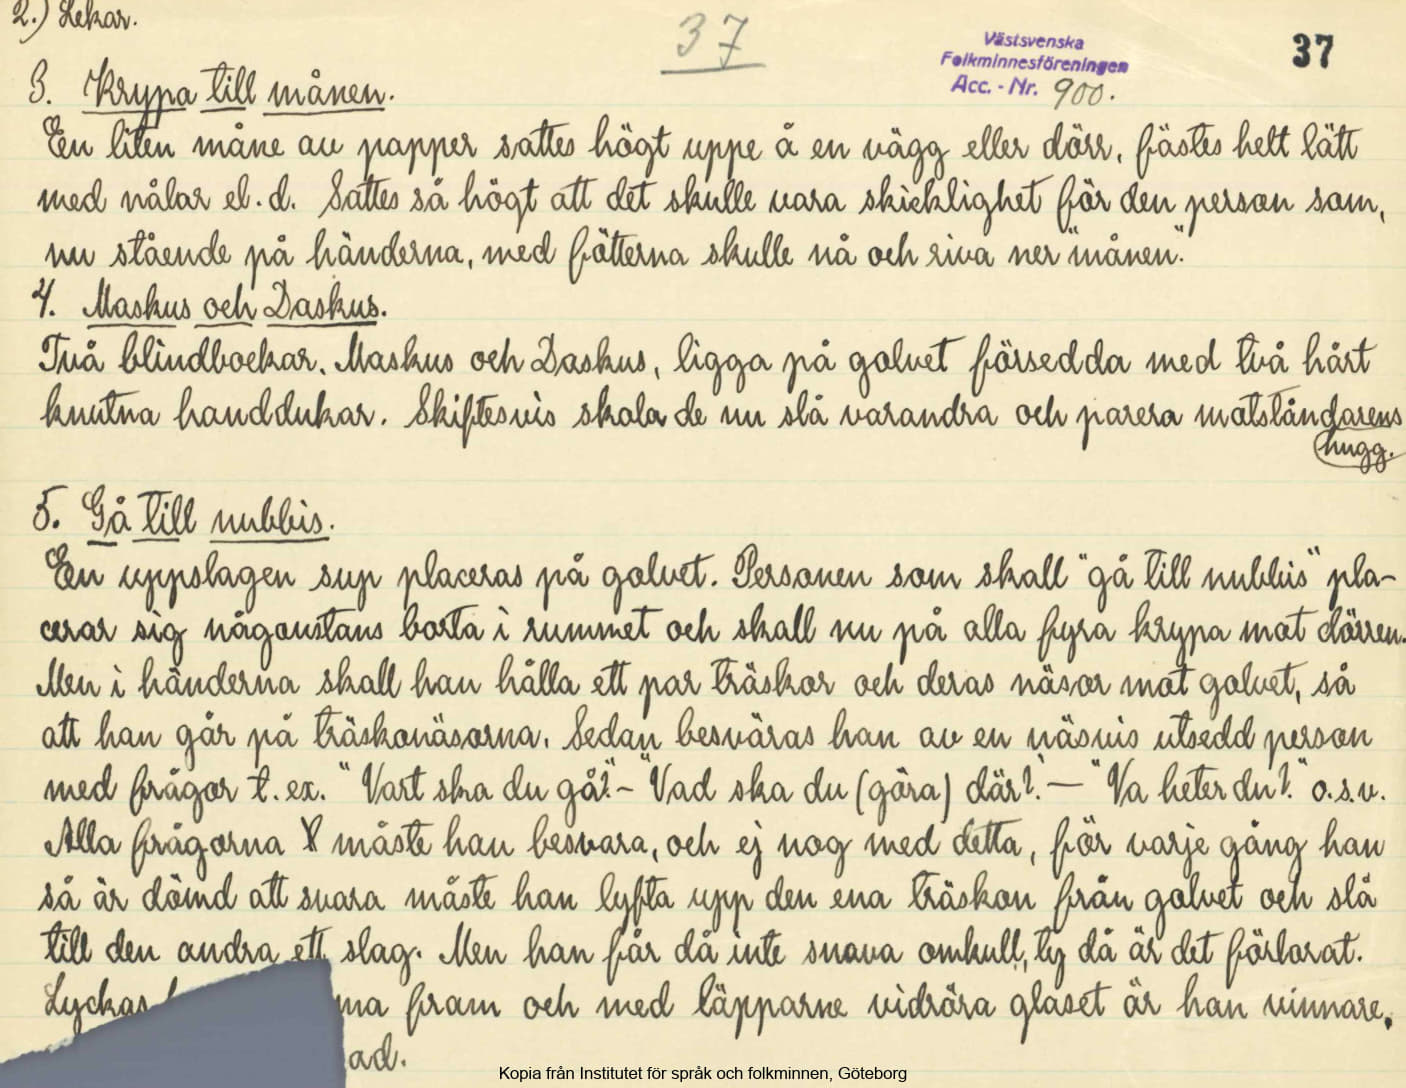 2.) Lekar.
37
Västsvenska
Folkminnesföreningen
Acc. - Nr. 900.
37
3. Krypa till månen.
En liten måne av papper sattes högt uppe å en vägg eller dörr, fästes helt lätt
med nålar el. d. Sattes så högt att det skulle vara skicklighet för den person som,
nu stående på händerna, med fötterna skulle nå och riva ner "månen".
4. Maskus och Daskus.
Två blindbockar, Maskus och Daskus, ligga på golvet försedda med två hårt
knutna handdukar. Skiftesvis skola de nu slå varandra och parera motståndarens
hugg.
5. Gå till nubbis.
En uppslagen sup placeras på golvet. Personen som skall "gå till nubbis" pla-
cerar sig någonstans borta i rummet och skall nu på alla fyra krypa mot dörren.
Men i händerna skall han hålla ett par träskor och deras näsor mot golvet, så
att han går på träskonäsorna. Sedan besväras han av en näsvis utsedd person
med frågor t. ex. "Vart ska du gå?" – "Vad ska du (göra) där?" — "Va heter du?" o.s.v.
Alla frågorna måste han besvara, och ej nog med detta, för varje gång han
så är dömd att svara måste han lyfta upp den ena träskon från golvet och slå
till den andra ett slag. Men han får då inte snava omkull, ty då är det förlorat.
Lyckas ma fram och med läpparne vidröra glaset är han vinnare.
ad.
Kopia från Institutet för språk och folkminnen, Göteborg